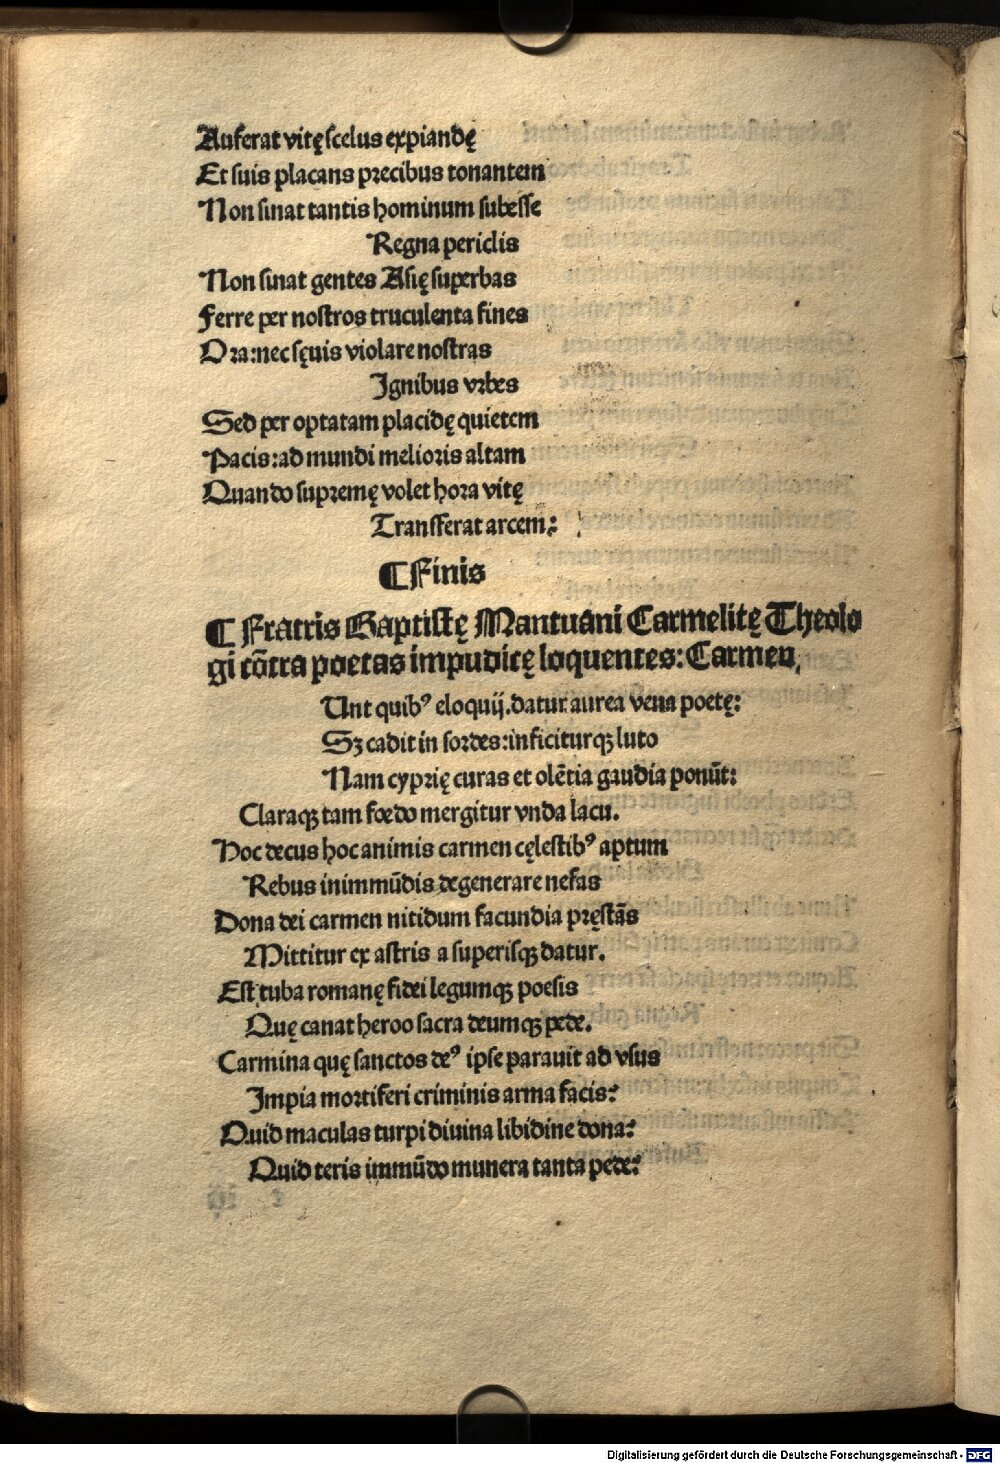 Auferat vitę scelus expiandę
Et suis placans precibus tonantem
Non sinat tantis hominum subesse
Regna periclis
Non sinat gentes Asię superbas
Ferre per nostros truculenta fines
Ora: nec sęuis violare nostras
Ignibus vrbes
Sed per optatam placidę quietem
Pacis: ad mundi melioris altam
Quando supremę volet hora vitę
Transferat arcem:
¶ Finis
¶ Fratris Baptistę Mantuani Carmelitę Theolo
gi cõtra poetas impudicę loquentes: Carmen,
Unt quibꝰ eloquij. datur aurea vena poetę:
Sꝫ cadit in sordes: inficiturqꝫ luto
Nam cyprię curas et olẽtia gaudia ponũt:
Claraqꝫ tam fœdo mergitur vnda lacu.
Hoc decus hoc animis carmen cęlestibꝰ aptum
Rebus in immũdis degenerare nefas
Dona dei carmen nitidum facundia pręstãs
Mittitur ex astris a superisqꝫ datur.
Est tuba romanę fidei legumqꝫ poesis
Quę canat heroo sacra deumqꝫ pede.
Carmina quę sanctos deꝰ ipse parauit ad vsus
Impia mortiferi criminis arma facis:
Quid maculas turpi diuina libidine dona:
Quid teris immũdo munera tanta pede:
Digitalisierung gefördert durch die Deutsche Forschungsgemeinschaft - DFG